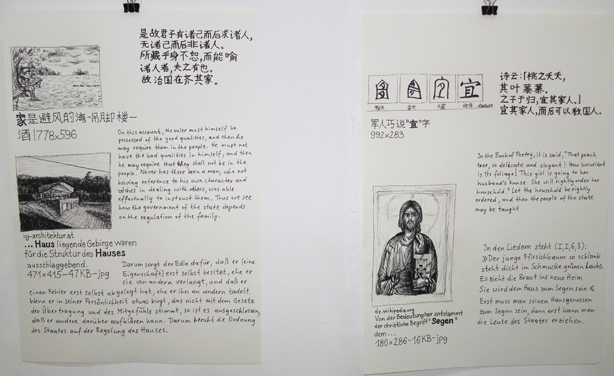 是故君子有诸己而后求诸人,
无诸己而后非诸人。
所藏乎身不恕,而能喻
诸人者,未之有也。
故治国在齐其家。
家是避风的海-吊却楼~
酒 | 778x596
On this account, the ruler must himself be
possessed of the good qualities, and then he
may require them in the people. He must not
have the bad qualities in himself, and then
he may require that they shall not be in the
people. Never has there been a man, who not
having reference to his own character and
wishes in dealing with others, was able
effectually to instruct them. Thus we see
how the government of the state depends
on the regulation of the family.
g-architektur.at
... Haus liegende Gebirge waren
für die Struktur des Hauses
ausschlaggebend.
471x415-47KB-jpg
Darum sorgt der Edle dafür, daß er (eine
Eigenschaft) erst selbst besitzt, ehe er
sie von andern verlangt, und daß er
einen Fehler erst selbst abgelegt hat, ehe er ihn an andern tadelt.
Wenn er in seiner Persönlichkeit etwas birgt, das nicht mit dem Gesetz
der Übertragung und des Mitgefühls stimmt, so ist es ausgeschlossen,
daß er andere darüber aufklären kann. Darum beruht die Ordnung
des Staates auf der Regelung des Hauses.
宜
诗云:「桃之夭夭,
其叶蓁蓁。
之子于归,宜其家人。」
宜其家人,而后可以教国人。
军人巧说"宜"字
992x283
In the Book of Poetry, it is said, "That peach
tree, so delicate and elegant! How luxuriant
is its foliage! This girl is going to her
husband's house. She will rightly order her
household." Let the household be rightly
ordered, and then the people of the state
may be taught.
de.wikipedia.org
Von der Bedeutung her entstammt
der christliche Begriff "Segen"
dem...
180x286-16KB-jpg
In den Liedern steht (I,I,6,3):
»Der junge Pfirsichbaum so schlank
steht dicht im Schmucke grünen Laubs.
Es zieht die Braut ins neue Heim.
Sie wird dem Haus zum Segen sein.«
Erst muss man seinen Hausgenossen
zum Segen sein, dann erst kann man
die Leute des Staates erziehen.